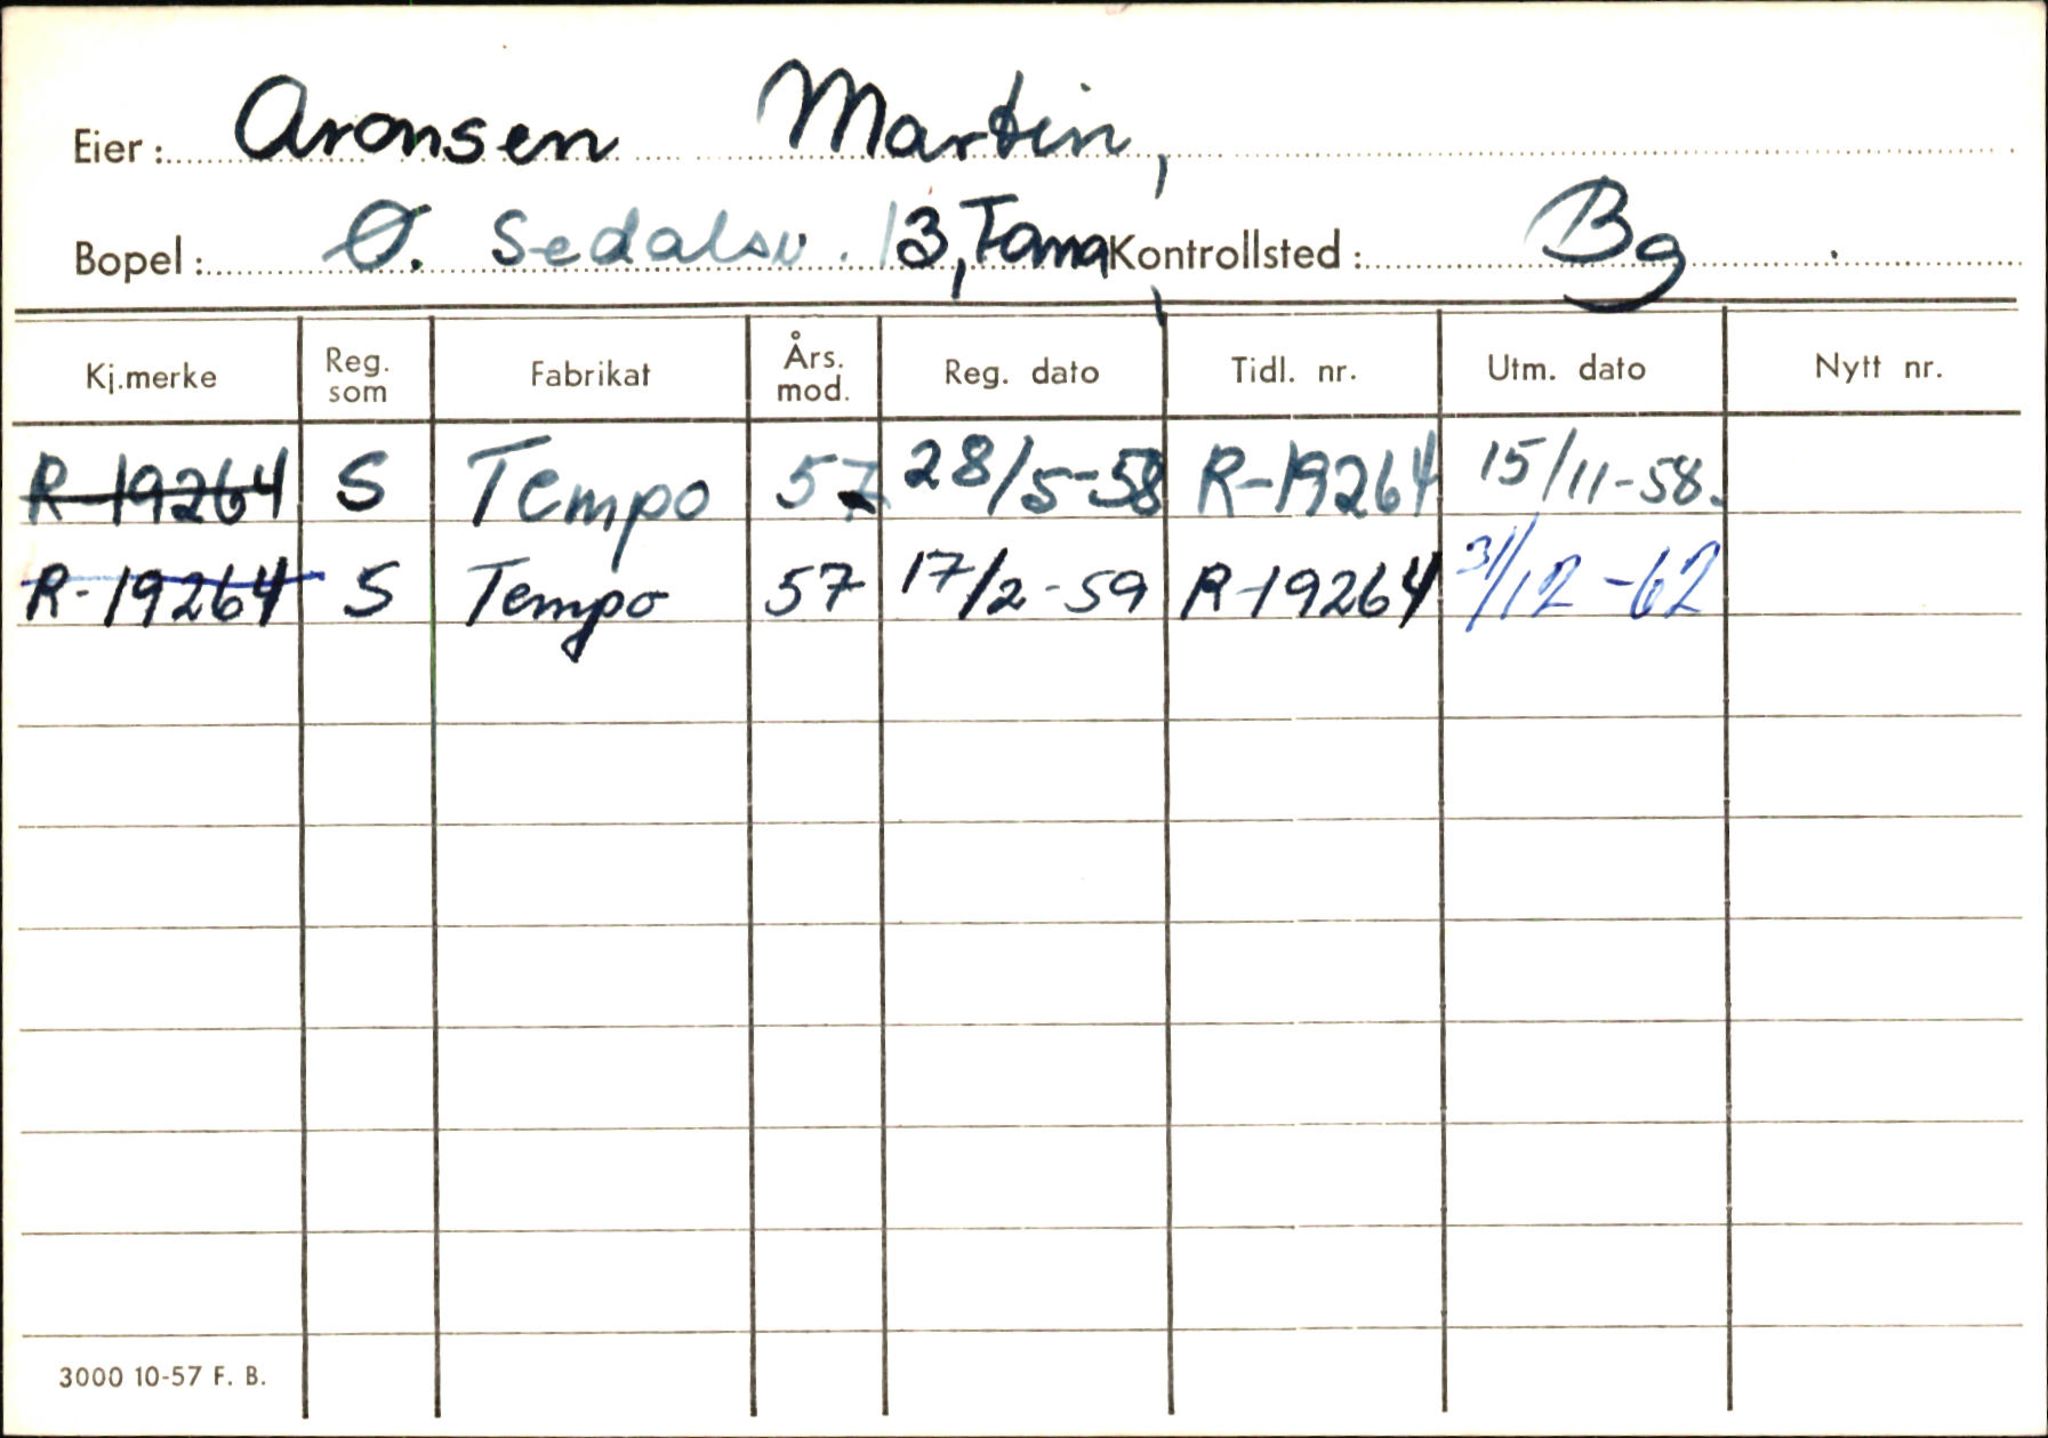 Eier: Aronsen Martin,
Bopel: Ø. Sedalsv. 13, Tama, Kontrollsted: Bg
Kj.merke Reg. som Fabrikat Års. mod. Reg. dato Tidl. nr. Utm. dato Nytt nr.
R-19264 S Tempo 57 28/5-58 R-19264 15/11-58.
R-19264 S Tempo 57 17/2-59 R-19264 31/12-62
3000 10-57 F. B.